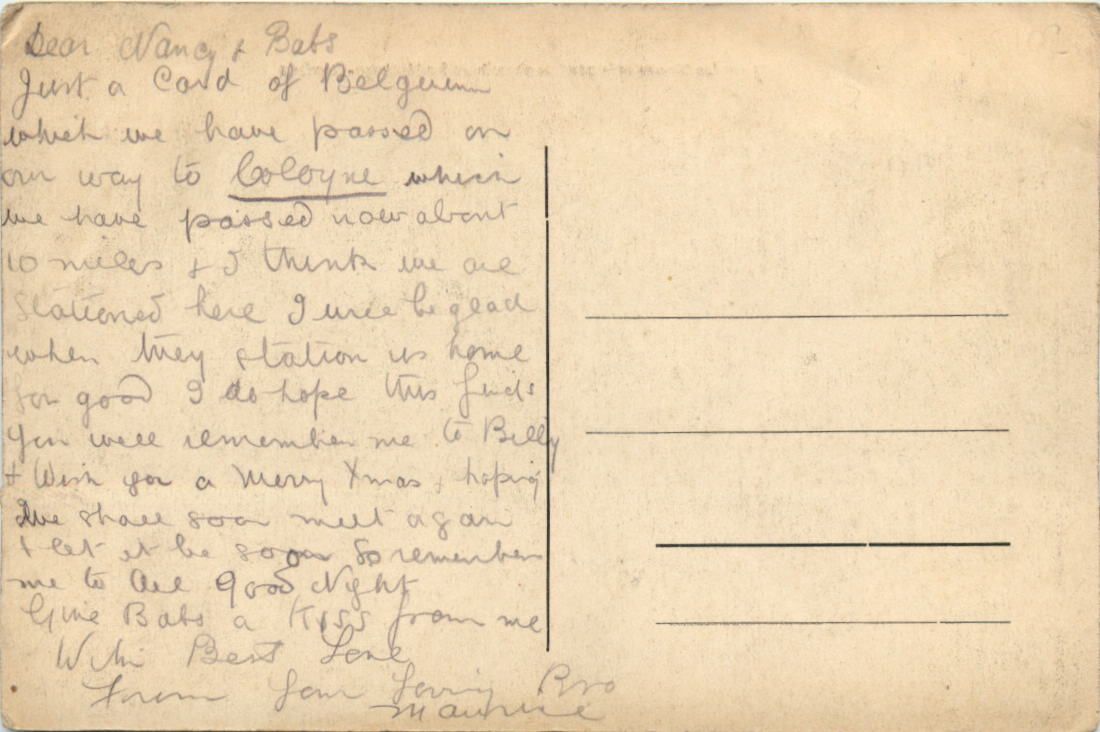 Dear Nancy & Babs
Just a Card of Belguim
which we have passed on
our way to Cologne which
we have passed now about
10 miles & I think we are
stationed here I will be glad
when they station us home
for good I do hope this finds
you well remember me to Billy
& Wish you a Merry Xmas & hoping
We shall soon meet again
& let it be soon So remember
me to all Good Night
Give Babs a Kiss from me
With Best Love
From Your Loving Bro
Maurice